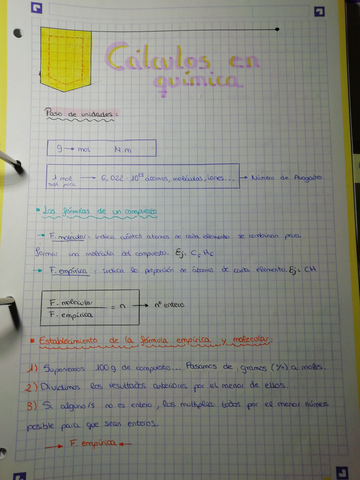 Cálculos en
química
Paso de unidades:
g → mol N.m
1 mol → 6,022 · 10²³ átomos, moléculas, iones... → Número de Avogadro
• Las fórmulas de un compuesto
→ F. molecular: indica cuántos átomos de cada elemento se combinan para
formar una molécula del compuesto. Ej. C₆H₆
→ F. empírica : indica la proporción de átomos de cada elemento. Ej. CH
F. molecular
F. empírica
= n → nº entero
• Establecimiento de la fórmula empírica y molecular:
1) Suponemos 100g de compuesto... Pasamos de gramos (%) a moles.
2) Dividimos los resultados anteriores por el menor de ellos.
3) Si alguno/s no es entero, los multiplico todos por el menor número
posible para que sean enteros.
→ F. empírica ←